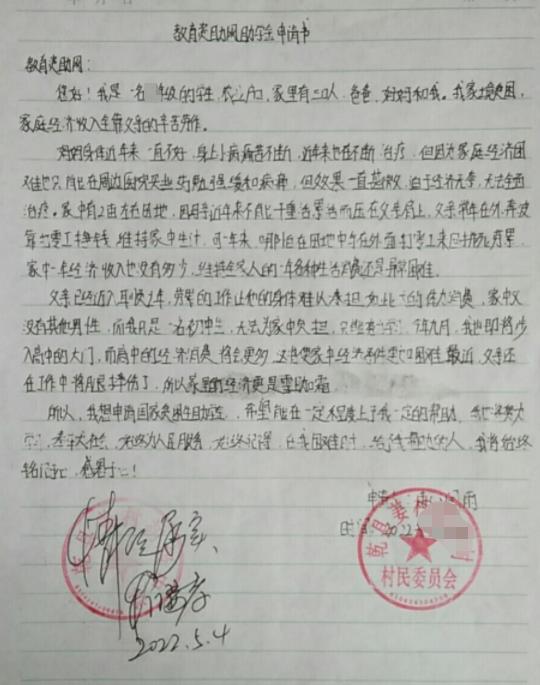 教育资助网助学金申请书
教育资助网：
您好！我是一名 年级的学生，农业户口，家里有三口人，爸爸、妈妈和我。我家境贫困，
家庭经济收入全靠父亲的辛苦劳作。
妈妈身体近年来一直不好，身上小病痛苦不断，近年来也在不断治疗，但因为家庭经济困
难也只能在周边医院买些药勉强缓和病痛，但效果一直甚微，迫于经济无奈，无法全面
治疗。家中有2亩左右田地，因母亲近年来不能干重活累活而压在父亲肩上，父亲常年在外奔波
靠打零工挣钱，维持家中生计，可一年来，哪怕在田地中与在外面打零工来回拼死劳累，
家中一年经济收入也没有多少，维持全家人的一年各种生活消费还是异常困难。
父亲已经近入耳顺之年，劳累的工作让他的身体难以承担如此大的体力消费，家中又
没有其他男性，而我只是一名初中生，无法为家中负担，只能努力学习，今年九月，我也即将步
入高中的大门，而高中的经济消费将会更多，这将使家中经济条件更加困难，最近，父亲还
在工作中将肋骨摔伤了，所以家里的经济更是雪加霜。
所以，我想申请国家贫困生助学金，希望能在一定程度上予我一定的帮助，我也将努力
学习，孝 ，为人民服务， 在我困难时，给予我帮助的人，我将始终
铭记于心，感恩于心！
申请人：
时间：2022
属实、
2022.5.4
乾县姜村 村
村民委员会